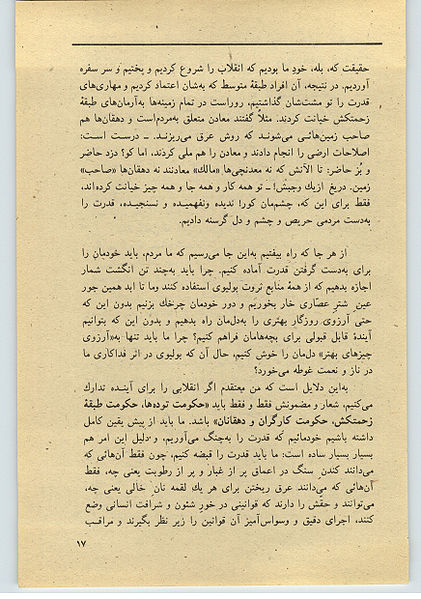 حقیقت که، بله، خود ما بودیم که انقلاب را شروع کردیم و پختیم و سر سفره
آوردیم. در نتیجه، آن افراد طبقهٔ متوسط که به‌شان اعتماد کردیم و مهاری‌های
قدرت را تو مشت‌شان گذاشتیم، روراست در تمام زمینه‌ها به‌آرمان‌های طبقهٔ
زحمتکش خیانت کردند. مثلاً گفتند معادن متعلق به‌مردم‌است و دهقان‌ها هم
صاحب زمین‌هائی می‌شوند که روش عرق می‌ریزند. ــ درست است:
اصلاحات ارضی را انجام دادند و معادن را هم ملی کردند، اما کو؟ دزد حاضر
و بُز حاضر: تا الآنش که نه معدنچی‌ها «مالك» معادنند نه دهقان‌ها «صاحب»
زمین. دریغ ازیك وجبش! ــ تو همه کار و همه جا و همه چیز خیانت کرده‌اند،
فقط برای این که، چشم‌مان کور! ندیده ونفهمیده و نسنجیده، قدرت را
به‌دست مردمی حریص و چشم و دل گرسنه دادیم.
از هر جا که راه بیفتیم به‌این جا می‌رسیم که ما مردم، باید خودمان را
برای به‌دست گرفتن قدرت آماده کنیم. چرا باید به‌چند تن انگشت شمار
اجازه بدهیم که از همهٔ منابع ثروت بولیوی استفاده کنند وما تا ابد همین جور
عین شتر عصّاری خار بخوریم و دور خودمان چرخك بزنیم بدون این که
حتی آرزوی روزگار بهتری را به‌دل‌مان راه بدهیم و بدون این که بتوانیم
آیندهٔ قابل قبولی برای بچه‌هامان فراهم کنیم؟ چرا ما باید تنها به«آرزوی
چیزهای بهتر» دل‌مان را خوش کنیم، حال آن که بولیوی در اثر فداکاری ما
در ناز و نعمت غوطه می‌خورد؟
به‌این دلایل است که من معتقدم اگر انقلابی را برای آینده تدارك
می‌کنیم، شعار و مضمونش فقط و فقط باید «حکومت توده‌ها، حکومت طبقهٔ
زحمتکش، حکومت کارگران و دهقانان» باشد. ما باید از پیش یقین کامل
داشته باشیم خودمائیم که قدرت را به‌چنگ می‌آوریم، و دلیل این امر هم
بسیار بسیار ساده است: ما باید قدرت را قبضه کنیم، چون فقط آن‌هائی که
می‌دانند کندن سنگ در اعماق پر از غبار و پر از رطوبت یعنی چه، فقط
آن‌هائی که می‌دانند عرق ریختن برای هر یك لقمه نان خالی یعنی چه،
می‌توانند و حقش را دارند که قوانینی در خورِ شئون و شرافت انسانی وضع
کنند، اجرای دقیق و وسواس‌آمیز آن قوانین را زیر نظر بگیرند و مراقب
۱۷